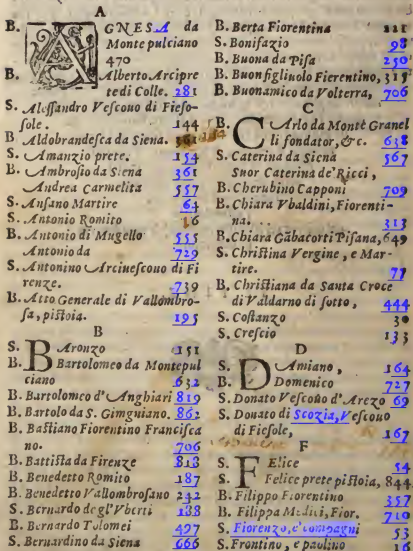 A
B. AGNESA da
Monte pulciano
470
B. Alberto Arcipre
te di Colle. 281
S. Alessandro Vescouo di Fieso-
sole. 144
B. Aldobrandesca da Siena.
S. Amanzio prete. 154
B. Ambrosio da Siena 361
Andrea Carmelita 557
S. Ansano Martire 64
S. Antonio Romito 16
B. Antonio di Mugello 555
Antonio da 729
S. Antonino Arciuescouo di Fi
renze. 739
B. Atto Generale di Vallombro-
sa, pistoia. 195
B
S. BAronzo 151
B. Bartolomeo da Montepul
ciano 632
B. Bartolomeo d'Anghiari 819
B. Bartolo da S. Gimgniano. 862
B. Bastiano Fiorentino Francisca
no. 706
B. Battista da Firenze 818
B. Benedetto Romito 187
B. Benedetto Vallombrosano 242
S. Bernardo degl'Vberti 188
B. Bernardo Tolomei 497
S. Bernardino da Siena 666
B. Berta Fiorentina 221
S. Bonifazio 98
B. Buona da Pisa 250
B. Buonfigliuolo Fiorentino, 315
B. Buonamico da Volterra, 706
C
B. CArlo da Monte Granel
li fondator, &c. 638
S. Caterina da Siena 567
Suor Caterina de' Ricci,
B. Cherubino Capponi 709
B. Chiara Vbaldini, Fiorenti-
na. 313
B. Chiara Gābacorti Pisana, 649
S. Christina Vergine, e Mar-
tire. 77
B. Christiana da Santa Croce
di Valdarno di sotto, 444
S. Costanzo 30
S. Crescio 133
D
S. DAmiano, 164
B. Domenico 727
S. Donato Vescouo d'Arezo 69
S. Donato di Scozia, Vescouo
di Fiesole, 167
F
S. FElice 54
S. Felice prete pistoia, 844
B. Filippo Fiorentino 357
B. Filippa Medici, Fior. 710
S. Fiorenzo, e compagni 53
S. Frontino, e paulino 16